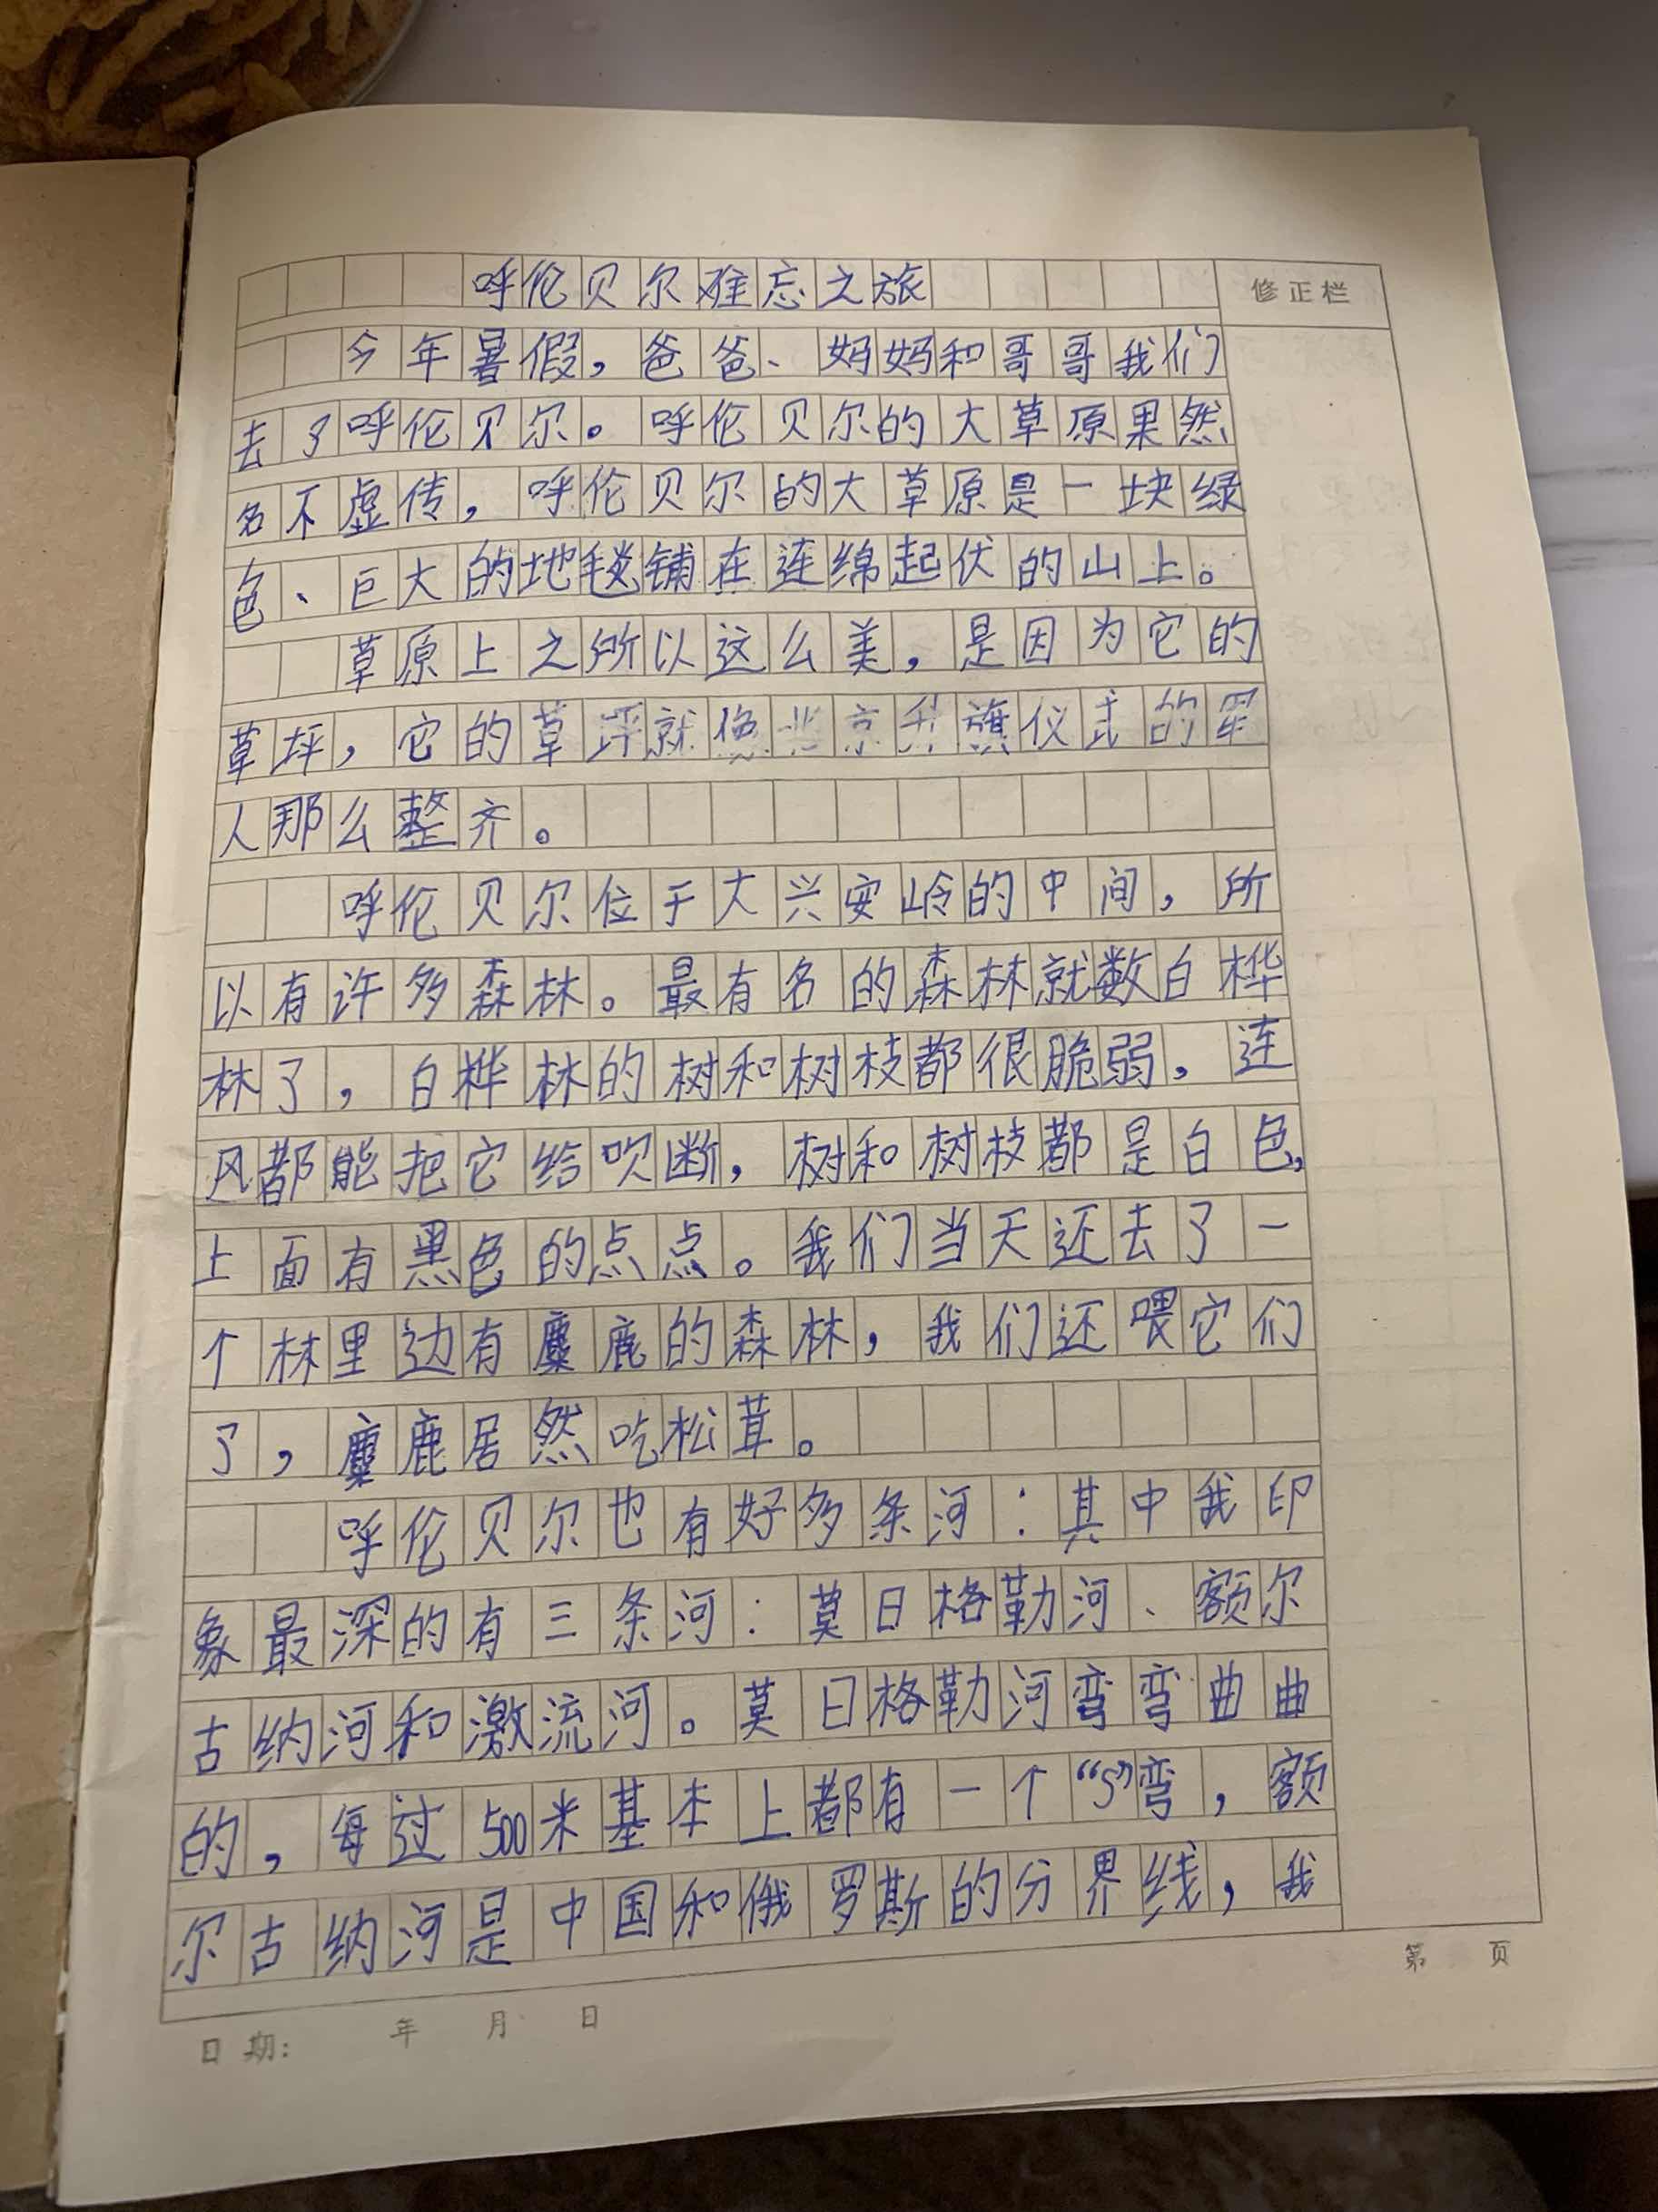 呼伦贝尔难忘之旅
修正栏
今年暑假，爸爸、妈妈和哥哥我们
去了呼伦贝尔。呼伦贝尔的大草原果然
名不虚传，呼伦贝尔的大草原是一块绿
色、巨大的地毯铺在连绵起伏的山上。
草原上之所以这么美，是因为它的
草坪，它的草坪就像北京升旗仪式的军
人那么整齐。
呼伦贝尔位于大兴安岭的中间，所
以有许多森林。最有名的森林就数白桦
林了，白桦林的树和树枝都很脆弱，连
风都能把它给吹断，树和树枝都是白色，
上面有黑色的点点。我们当天还去了一
个林里边有麋鹿的森林，我们还喂它们
了，麋鹿居然吃松茸。
呼伦贝尔也有好多条河：其中我印
象最深的有三条河：莫日格勒河、额尔
古纳河和激流河。莫日格勒河弯弯曲曲
的，每过500米基本上都有一个“S”弯，额
尔古纳河是中国和俄罗斯的分界线，我
第 页
日期： 年 月 日